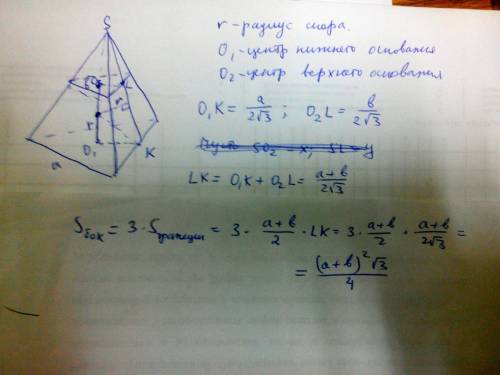 S
r - радиус шара.
O₁ - центр нижнего основания
O₂ - центр верхнего основания
O₁K = a/(2√3) ; O₂L = b/(2√3)
Пусть SO₂ = x, SL = y
LK = O₁K + O₂L = (a+b)/(2√3)
O₁ K
a
Sбок = 3·Sтрапеции = 3 · (a+b)/2 · LK = 3 · (a+b)/2 · (a+b)/(2√3) =
= (a+b)²√3/4